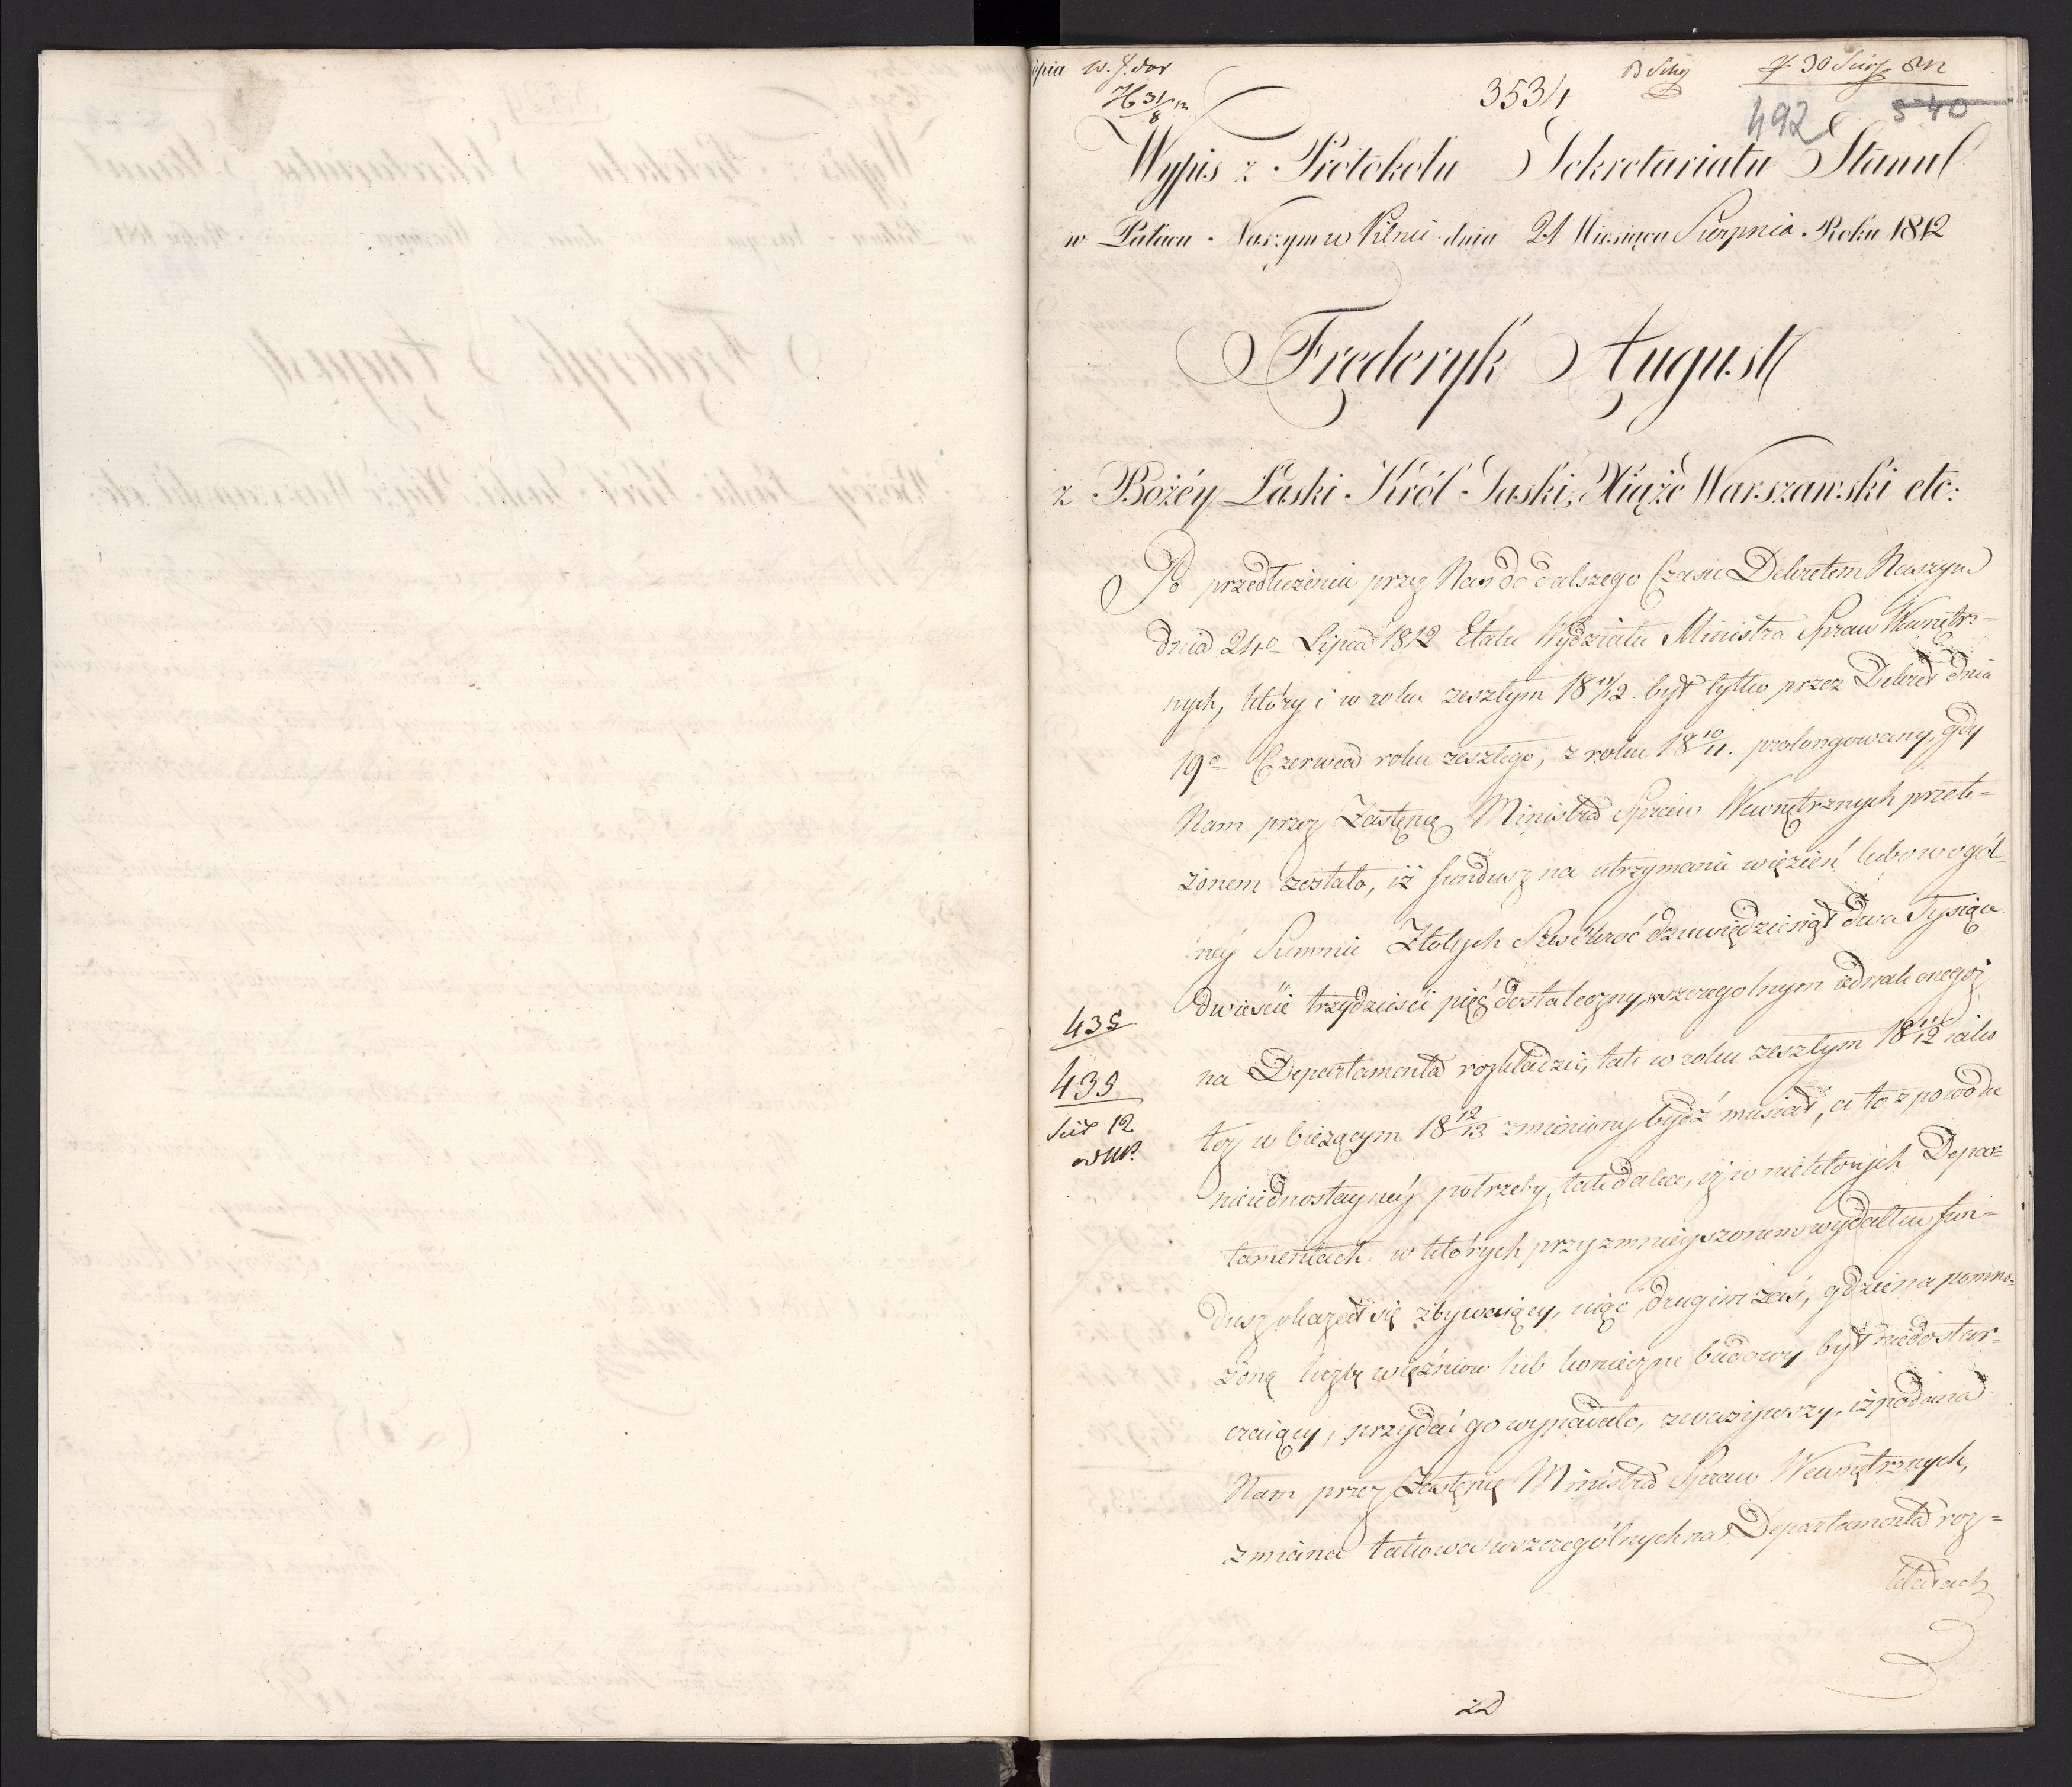 w. J. dor
3534
492
540
Wypis z Protokołu Sekretariatu Stanu
w Pałacu Naszym w Pilnie dnia 21 Miesiąca Sierpnia Roku 1812
Frederyk August
z Bożéy Łaski Król Saski, Xiąże Warszawski etc:
Po przedłużeniu przez Nas do dalszego Czasu Dekretem Naszym
dnia 24o Lipca 1812 Etatu Wydziału Ministra Spraw Wewnętrz-
nych, który i w roku zeszłym 18 11/12 był tylko przez Dekret dnia
19o Czerwca roku zeszłego, z roku 18 10/11. prolongowany, gdy
Nam przez Zastępcę Ministra Spraw Wewnętrznych przeło-
żonem zostało, iż fundusz na utrzymanie więzień lubo w ogól-
néy Summie Złotych Sześćkroć dziewiędziesiąt dwa Tysiące
dwieście trzydzieści pięć dostateczny, w szczególnym iednak onegoż
na Departamenta rozkładzie, tak w roku zeszłym 18 11/12 iako
też w bieżącym 18 12/13 zmieniony bydź musiał, a to z powodu
nieiednostaynéy potrzeby, tak dalece, iż w niektórych Depar-
tamentach w których przy zmnieyszonem wydatku fun-
dusz okazał się zbywaiący, uiąć, drugim zaś, gdzie na pomno-
żoną liczbę więźniow lub konieczne budowy był niedostar-
czaiący, przydać go wypadało, zważywszy, iż podana
Nam przez Zastępcę Ministra Spraw Wewnętrznych,
zmiana takowa w szczególnych na Departamenta roz-
kładach
435
435